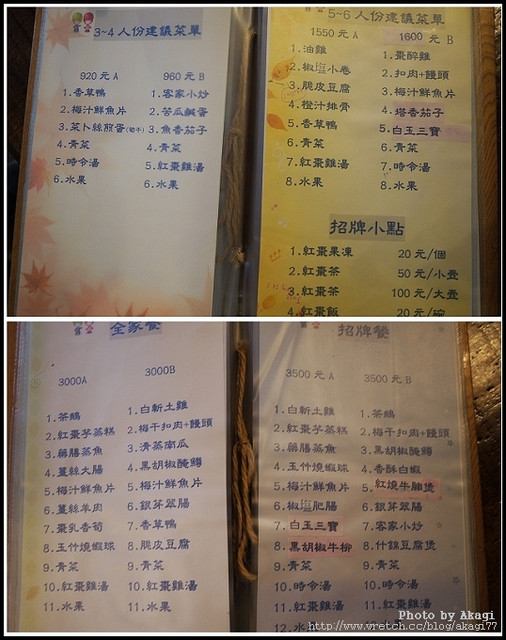 3~4人份建議菜單
920元A
1.香草鴨
2.梅汁鮮魚片
3.菜卜絲煎蛋(節子)
4.青菜
5.時令湯
6.水果
960元B
1.客家小炒
2.苦瓜鹹蛋
3.魚香茄子
4.青菜
5.紅棗雞湯
6.水果
5~6人份建議菜單
1550元A
1.油雞
2.椒塩小卷
3.脆皮豆腐
4.橙汁排骨
5.香草鴨
6.青菜
7.紅棗雞湯
8.水果
1600元B
1.棗醉雞
2.扣肉+饅頭
3.梅汁鮮魚片
4.塔香茄子
5.白玉三寶
6.青菜
7.時令湯
8.水果
招牌小點
1.紅棗果凍 20元/個
2.紅棗茶 50元/小壺
3.紅棗茶 100元/大壺
4.紅棗飯 20元/碗
全家餐
3000A
1.茶鵝
2.紅棗芋菜糕
3.藥膳蒸魚
4.薑絲大腸
5.梅汁鮮魚片
6.薑絲羊肉
7.棗乳香筍
8.玉竹燒蝦球
9.青菜
10.紅棗雞湯
11.水果
3000B
1.白斬土雞
2.梅干扣肉+饅頭
3.清蒸南瓜
4.黑胡椒醃鱘
5.梅汁鮮魚片
6.銀芽翠腸
7.香草鴨
8.脆皮豆腐
9.青菜
10.紅棗雞湯
11.水果
招牌餐
3500元A
1.白斬土雞
2.紅棗芋菜糕
3.藥膳蒸魚
4.玉竹燒蝦球
5.梅汁鮮魚片
6.椒塩肥腸
7.白玉三寶
8.黑胡椒牛柳
9.青菜
10.時令湯
11.紅棗雞湯
12.水
3500元B
1.茶鵝
2.梅干扣肉+饅頭
3.黑胡椒醃鱘
4.香酥白蝦
5.紅燒牛腩煲
6.銀芽翠腸
7.客家小炒
8.什錦豆腐煲
9.青菜
10.時令湯
11.紅棗雞湯
Photo by Akagi
http://www.wretch.cc/blog/akagi77